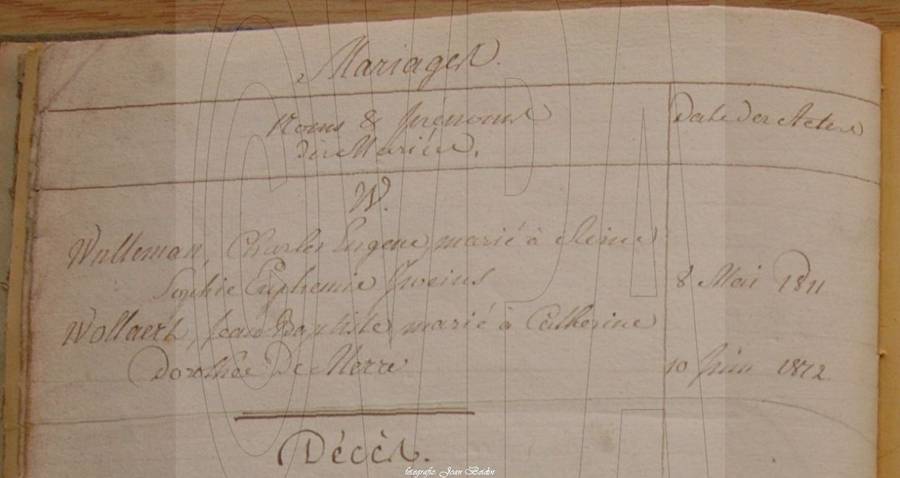 Mariages.
Noms & prénoms
des Mariés.
Date des Actes
W.
Wulleman, Charles Eugene, marié à Reine
Sophie Euphemie Sweins
8 Mai 1811
Wollaert, Jean Baptiste marié à Catherine
Dorothée De Merre
10 Juin 1812
Décès.
fotografie: Joan Beidin